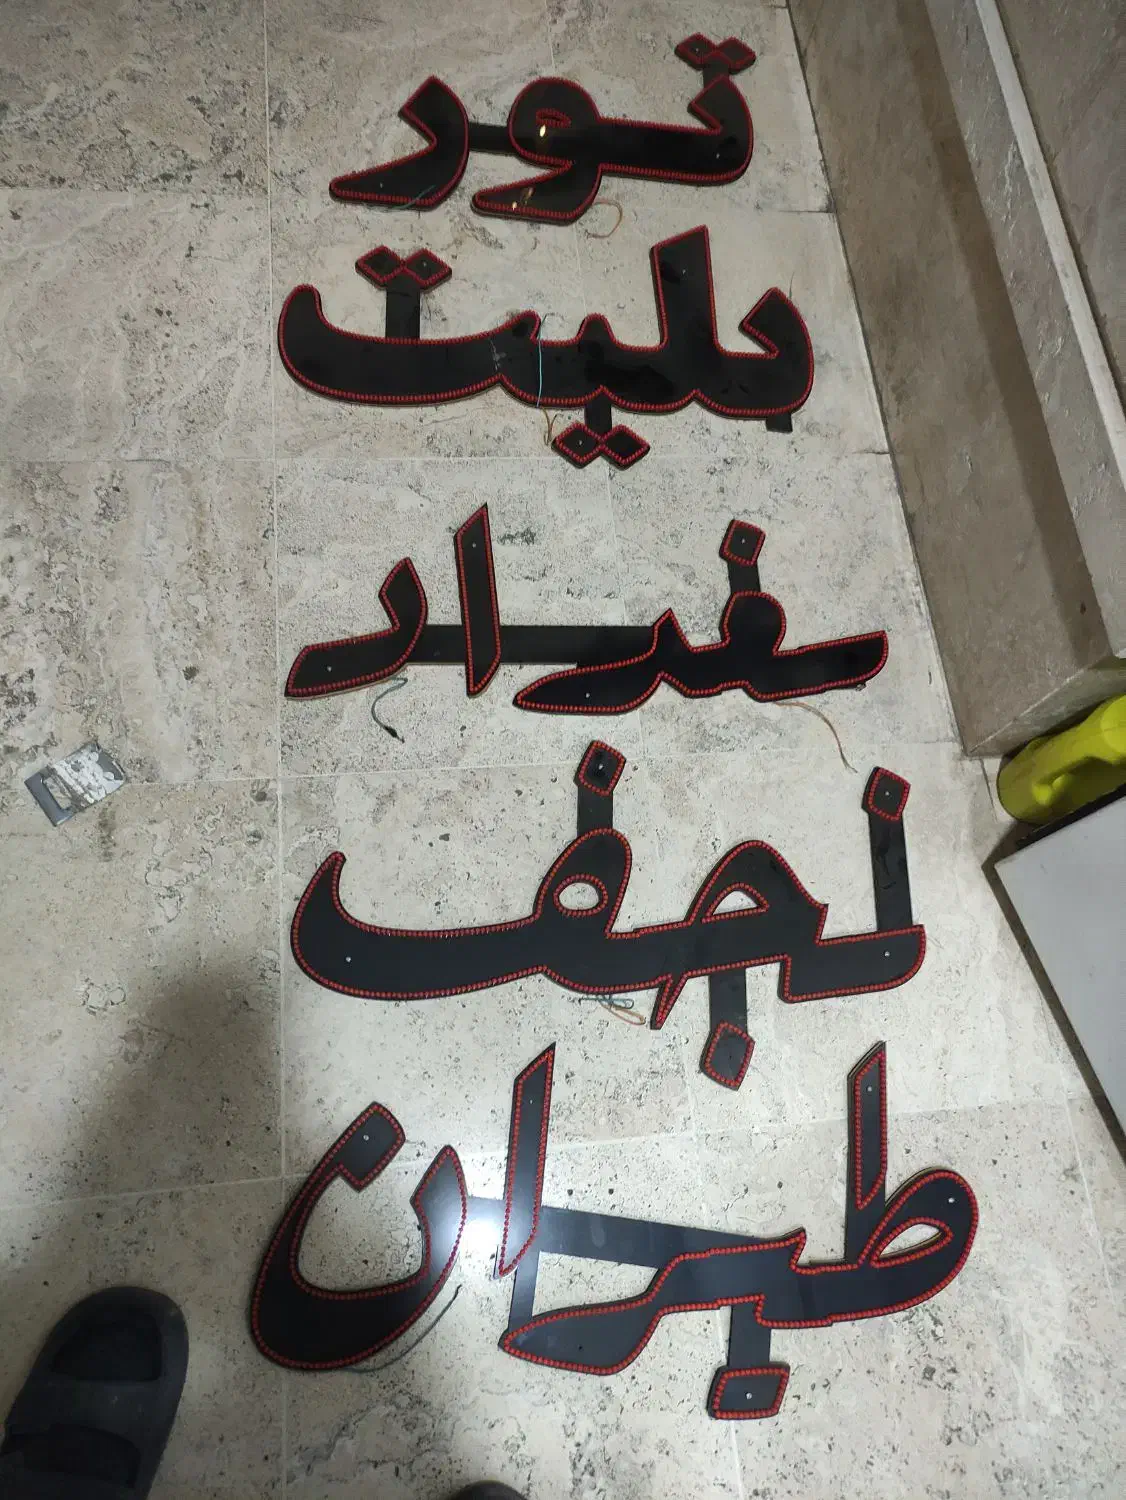 تور
بلیت
بغداد
نجف
طبران